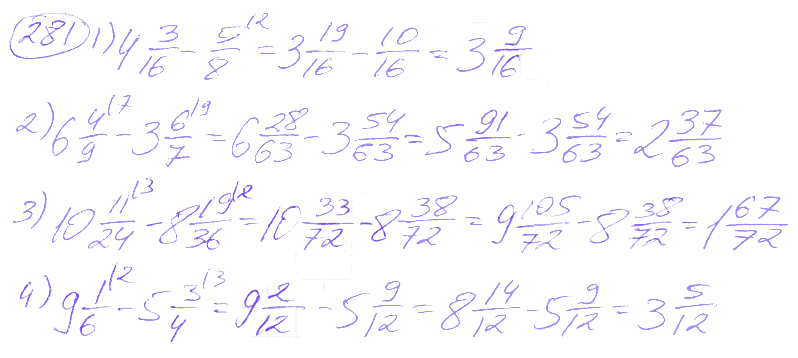 281 1) 4 3/16 - 5/8 |2 = 3 19/16 - 10/16 = 3 9/16
2) 6 4/9 |7 - 3 6/7 |9 = 6 28/63 - 3 54/63 = 5 91/63 - 3 54/63 = 2 37/63
3) 10 11/24 |3 - 8 19/36 |2 = 10 33/72 - 8 38/72 = 9 105/72 - 8 38/72 = 1 67/72
4) 9 1/6 |2 - 5 3/4 |3 = 9 2/12 - 5 9/12 = 8 14/12 - 5 9/12 = 3 5/12